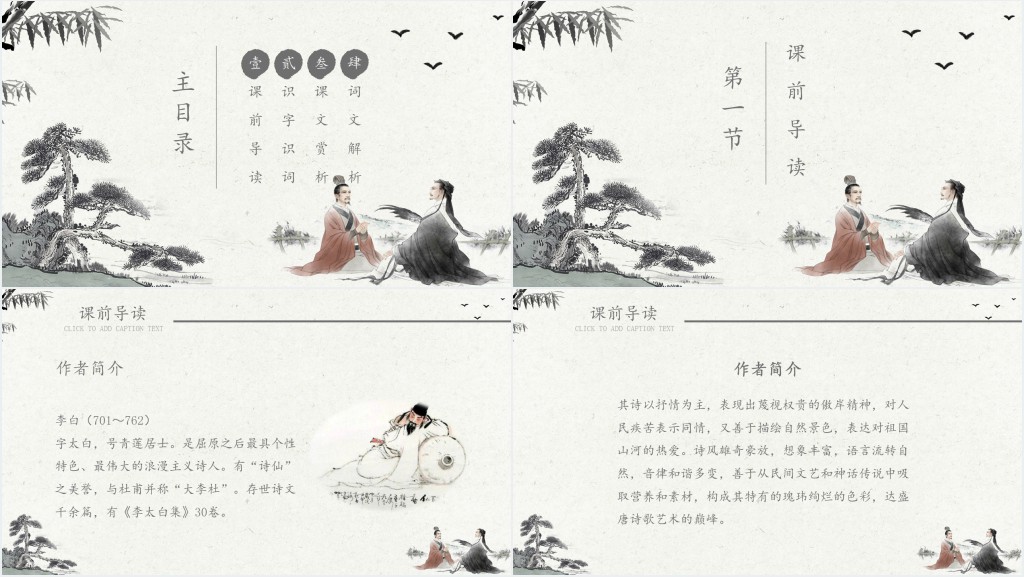 主目录
壹
课前导读
贰
识字识词
叁
课文赏析
肆
词文解析
第一节
课前导读
课前导读
CLICK TO ADD CAPTION TEXT
作者简介
李白（701～762）
字太白，号青莲居士。是屈原之后最具个性
特色、最伟大的浪漫主义诗人。有“诗仙”
之美誉，与杜甫并称“大李杜”。存世诗文
千余篇，有《李太白集》30卷。
课前导读
CLICK TO ADD CAPTION TEXT
作者简介
其诗以抒情为主，表现出蔑视权贵的傲岸精神，对人
民疾苦表示同情，又善于描绘自然景色，表达对祖国
山河的热爱。诗风雄奇豪放，想象丰富，语言流转自
然，音律和谐多变，善于从民间文艺和神话传说中吸
取营养和素材，构成其特有的瑰玮绚烂的色彩，达盛
唐诗歌艺术的巅峰。